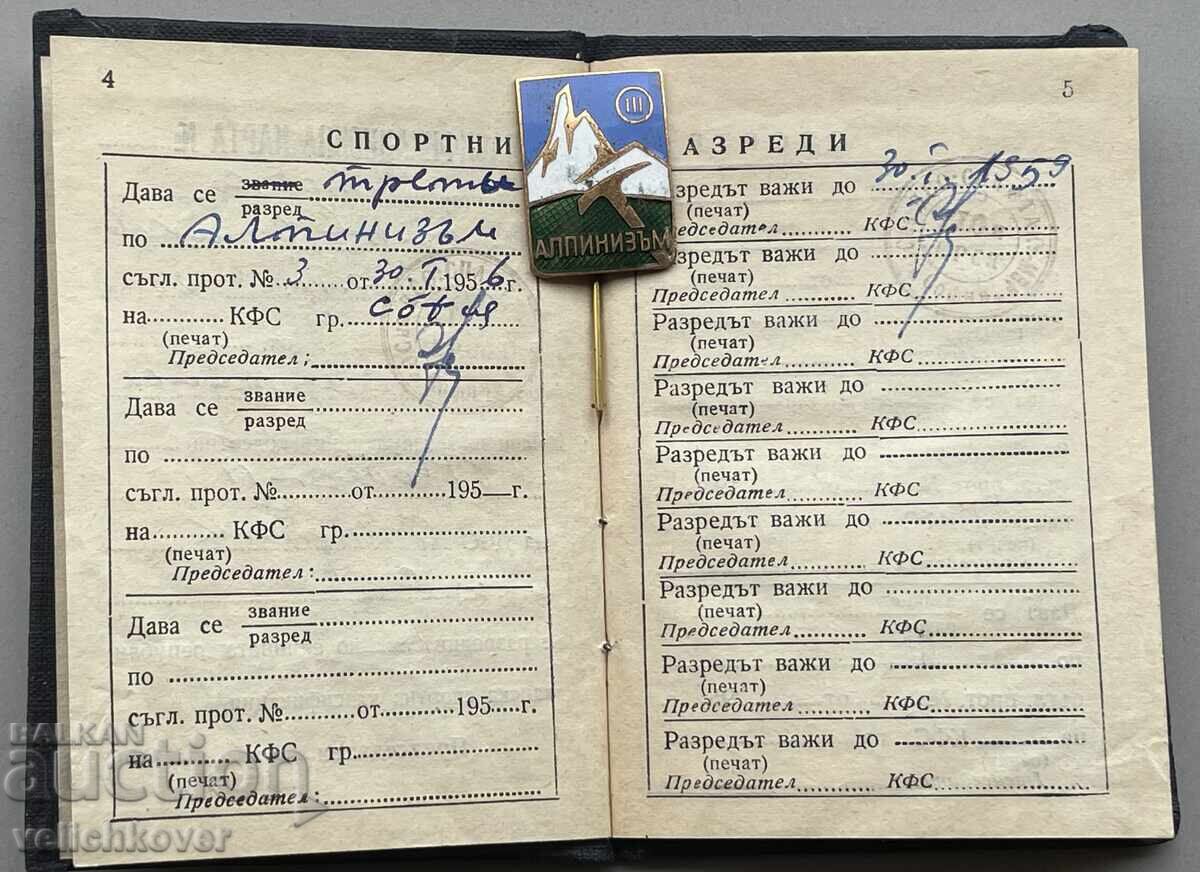 4
СПОРТНИ
Дава се звание третм
разред
по Алпинизъм
съгл. прот. № 3 от 30. I 1956 г.
на КФС гр. София
(печат)
Председател;
Дава се звание
разред
по
съгл. прот. № от 195 — г.
на КФС гр.
(печат)
Председател:
Дава се звание
разред
по
съгл. прот. № от 195 г.
на КФС гр.
(печат)
Председател:
III
АЛПИНИЗЪМ
5
АЗРЕДИ
азредът важи до 30. I. 1959
(печат)
Председател КФС
Разредът важи до
(печат)
Председател КФС
Разредът важи до
(печат)
Председател КФС
Разредът важи до
(печат)
Председател КФС
Разредът важи до
(печат)
Председател КФС
Разредът важи до
(печат)
Председател КФС
Разредът важи до
(печат)
Председател КФС
Разредът важи до
(печат)
Председател КФС
Разредът важи до
(печат)
Председател КФС
BALKAN
auction
velichkover